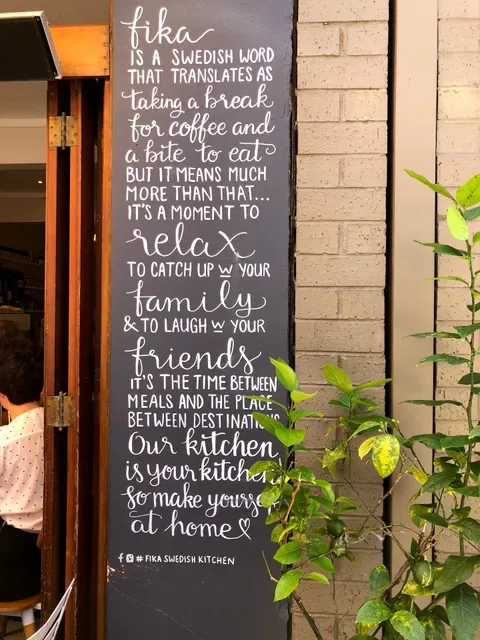 fika
IS A SWEDISH WORD
THAT TRANSLATES AS
taking a break
for coffee and
a bite to eat
BUT IT MEANS MUCH
MORE THAN THAT...
IT'S A MOMENT TO
relax
TO CATCH UP W YOUR
family
& TO LAUGH W YOUR
friends
IT'S THE TIME BETWEEN
MEALS AND THE PLACE
BETWEEN DESTINATIONS
Our kitchen
is your kitchen
so make yourself
at home
# FIKA SWEDISH KITCHEN